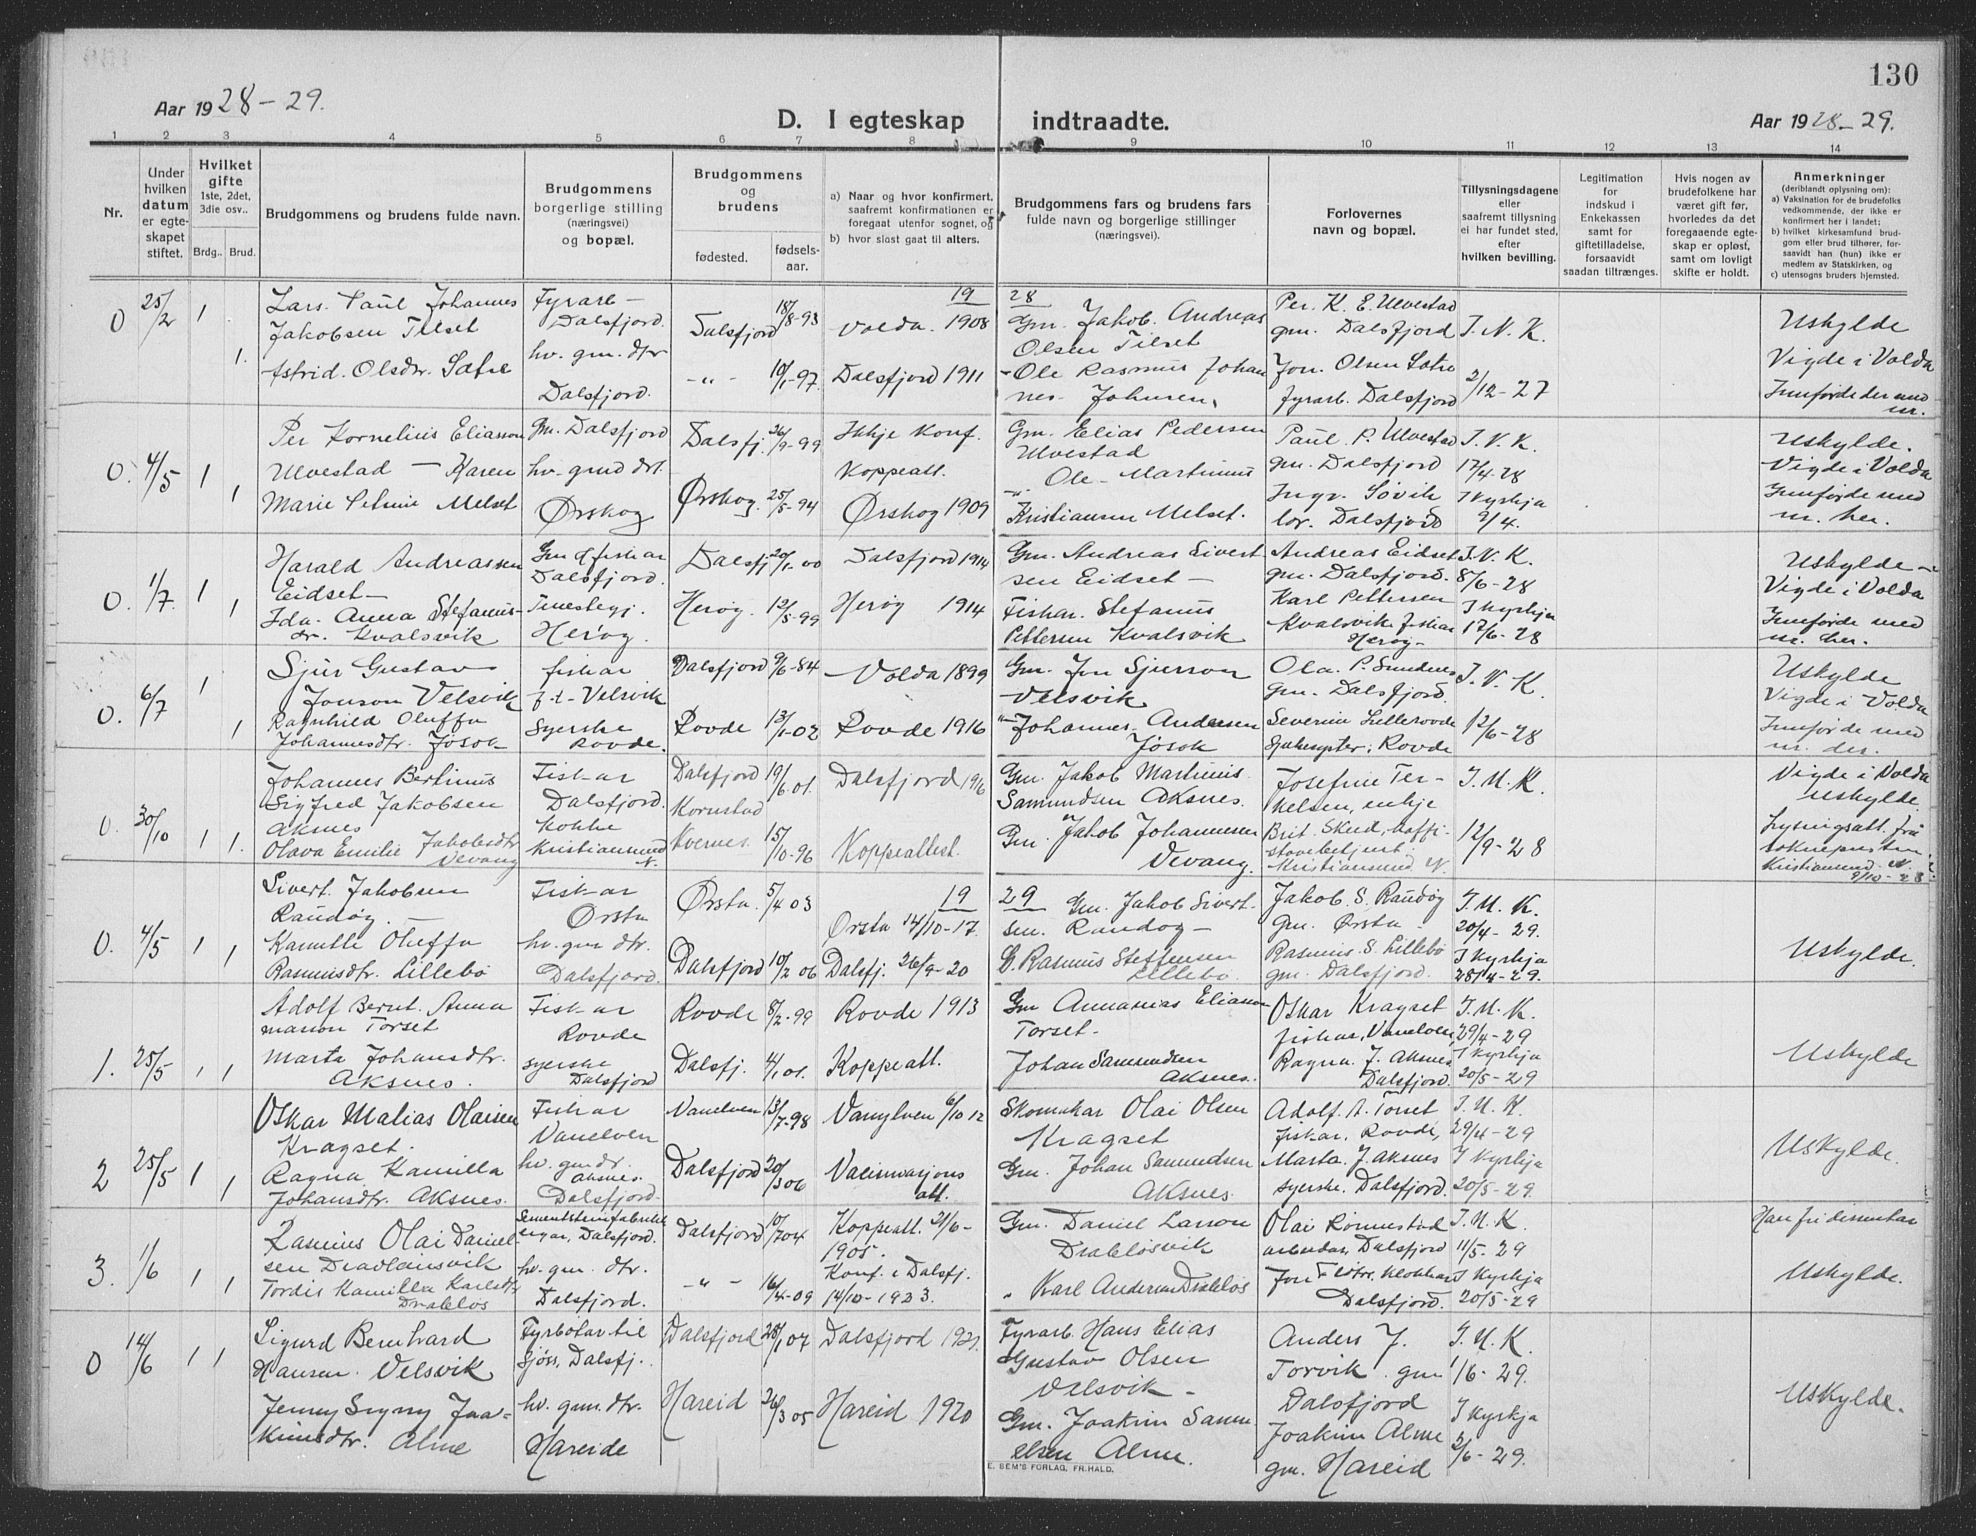 130
Aar 1928-29.
D. I egteskap indtraadte.
Aar 1928-29.
1 2 3 4 5 6 7 8 9 10 11 12 13 14
Nr.
Under hvilken datum er egteskapet stiftet.
Hvilket gifte 1ste, 2det, 3die osv..
Brdg.. Brud.
Brudgommens og brudens fulde navn.
Brudgommens borgerlige stilling (næringsvei) og bopæl.
Brudgommens og brudens
fødested. fødselsaar.
a) Naar og hvor konfirmert, saafremt konfirmationen er foregaat utenfor sognet, og
b) hvor slost gaat til alters.
Brudgommens fars og brudens fars fulde navn og borgerlige stillinger (næringsvei).
Forlovernes navn og bopæl.
Tillysningsdagene eller saafremt tillysning ei har fundet sted, efter hvilken bevilling.
Legitimation for indskud i Enkekassen samt for giftetilladelse, forsaavidt saadan tiltrænges.
Hvis nogen av brudefolkene har været gift før, hvorledes da det foregaaende egteskap er opløst, samt om lovligt skifte er holdt.
Anmerkninger (deriblandt oplysning om): a) Vaksination for de brudefolks vedkommende, der ikke er konfirmert her i landet; b) hvilket kirkesamfund brudgom eller brud tilhører, forsaavidt han (hun) ikke er medlem av Statskirken, og c) utensogns bruders hjemsted.
19 28
0 25/2 1 Lars Paul Johannes Jakobsen Tilset Fyrarb- Dalsfjord. Dalsfjord 18/8-93 Volda. 1908 Gm. Jakob. Andreas Olsen Tilset Per. K. E. Ulvestad gm. Dalsfjord I. N. K. Uskylde
1. Astrid. Olsdtr. Satre hv. gm. dtr Dalsfjord. -"- 10/1-97 Dalsfjord 1911 -Ole Rasmus Johannes Johnsen. Jon. Olsen Satre fyrarb. Dalsfjord 2/12-27 Vigde i Volda Innførde der med nr.
0. 4/5 1 Per Kornelius Eliasson Ulvestad - Gm. Dalsfjord Dalsfj. 26/9-99 Ikkje Konf. Koppeatt. Gm. Elias Pedersen Ulvestad Paul P. Ulvestad gm. Dalsfjord I. V. K. 17/4-28 Uskylde. Vigde i Volda
1 Karen Marie Petrine Melset hv. gmd dtr. Ørskog Ørskog. 25/5-94 Ørskog 1909 -"- Ole Martinus Kristiansen Melset. Ingv. Søvik lor. Dalsfjord I Kyrkja 9/4. Innførde med nr. her.
0. 1/7 1 Harald Andreassen Eidset- Gm og fiskar Dalsfjord. Dalsfj 20/1-00 Dalsfjord 1914 Gm. Andreas Sivertsen Eidset - Andreas Eidset gm. Dalsfjord. I. V. K. 8/6-28 Uskylde - Vigde i Volda
1 Ida. Anna Stefanusdr. Kvalsvik Tenestegj. Herøg. Herøg. 12/5-99 Herøg 1914 Fiskar. Stefanus Pettersen Kvalsvik Karl Pettersen Kvalsvik fiskar Herøg- I Kyrkja 17/6-28 Innførde med nr. her.
0. 6/7 1 Sjur Gustav Jonson Velsvik fiskar f.t. Velsvik Dalsfjord 9/6-84 Volda 1899 Gm. Jon Sjurson Velsvik Ola. P. Sundnes Gm. Dalsfjord. I. V. K. Uskylde Vigde i Volda
1 Ragnhild Oluffa Johannesdtr. Jøsok Syerske Rovde. Rovde 13/1-02 Rovde 1916 -"- Johannes Andersen Jøsok Severine Lillerovde Sjukesyster, Rovde 12/6-28 Innførde med nr. der.
0. 30/10 1 Johannes Bertinus Sigfred Jakobsen Aksnes Fiskar Dalsfjord. Dalsfjord 19/6.01. Dalsfjord 1916 Gm. Jakob Martinus Samundsen Aksnes. Josefine Terkelsen, enkje I. M. K. Vigde i Volda uskylde
1. Olava Emilie Jakobsdtr Vevang Kokke Kristiansund N. Kornstad Kvernes. 15/10-96 Koppeattest. Gm. Jakob Johannesen Vevang. Brit. Skud, kaffistovebetjent. Kristiansund N. 12/9-28 Lysingsatt. frå soknepresten Kristiansund N. 9/10-28
19 29
0. 4/5 1 Sivert Jakobsen Raudøg. - Fiskar Ørsta Ørsta. 5/4 03 Ørsta 14/10-17. Gm. Jakob Sivertsen. Raudøg - Jakob. S. Raudøg Gm. Ørsta - I. M. K. 20/4-29. Uskylde.
1 Kamilla Oluffa Rasmusdtr. Lillebø hv. gm dtr. Dalsfjord. Dalsfjord 10/2 06 Dalsfj. 26/9-20 G. Rasmus Steffensen Lillebø. Rasmus S. Lillebø gm. Dalsfjord. I Kyrkja 28/4-29.
1. 25/5 1 Adolf Bernt. Annamanson Torset Fiskar Rovde Rovde 8/2-99 Rovde 1913 Gm Annanias Eliasson Torset- Oskar Kragset fiskar, Vanelven I. M. K. 29/4-29 Uskylde
1 Marta Johansdtr. Aksnes. Syerske Dalsfjord Dalsfj. 4/1 01. Koppeatt. Johan Samundsen Aksnes. Ragna. J. Aksnes Dalsfjord. I Kyrkja 20/5-29
2 25/5 1 Oskar Matias Olaisen Kragset. Fiskar Vanelven Vanelven 13/7-98 Vanylven 6/10 12 Skomakar Olai Olsen Kragset Adolf. A. Torset fiskar. Rovde, I. M. K. 29/4-29 Uskylde.
1 Ragna Kamilla Johansdtr. Aksnes. hv. gmdr. Aksnes. Dalsfjord. Dalsfjord 20/3 06 Vacinnasjons att. Gm. Johan Samundsen Aksnes. Marta. J. Aksnes syerske. Dalsfjord. I Kyrkja 20/5-29.
3. 1/6 1 Rasmus Olai Danielsen Drabløsvik Sementsteinfabrikk eigar, Dalsfjord. Dalsfjord 10/7 04 Koppeatt. 21/6-1905. Gm. Daniel Larson Drabløsvik Olai Rønnestad arbeidar, Dalsfjord I. M. K. 11/5-29 Han fri dissentar
1 Tordis Kamilla Karlsdtr Drabløs hv. gm. dtr. Dalsfjord. -"- 16/4-09 Konf. i Dalsfj. 14/10-1923. " Karl Andersen Drabløs Jon Klokkar Dalsfjord. I Kyrkja 20/5-29 Uskylde.
0 14/6 1 Sigurd Bernhard Hansen. Velsvik Fyrbøtar til sjøss, Dalsfj. Dalsfjord 28/1 07 Dalsfjord 1921. Fyrarb. Hans Elias Gustav Olsen Velsvik - Anders J. Torvik gm Dalsfjord I. M. K. 1/6-29.
1 Jenny Signy Joakimsdtr. Alme hv. gm. dtr. Hareide Hareid 26/3 05 Hareid 1920 Gm. Joakim Samuelsen Alme. Joakim Alme gm. Hareid I Kyrkja 2/6-29. Uskylde.
E. SEM'S FORLAG, FR.HALD.